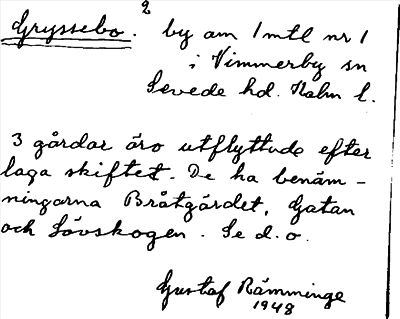 Gryssebo.² by om 1 mtl nr 1
i Vimmerby sn
Sevede hd. Kalm l.
3 gårdar äro utflyttade efter
laga skiftet. De ha benäm-
ningarna Bråtgärdet, Gatan
och Lövskogen. Se d. o.
Gustaf Rämminge
1948